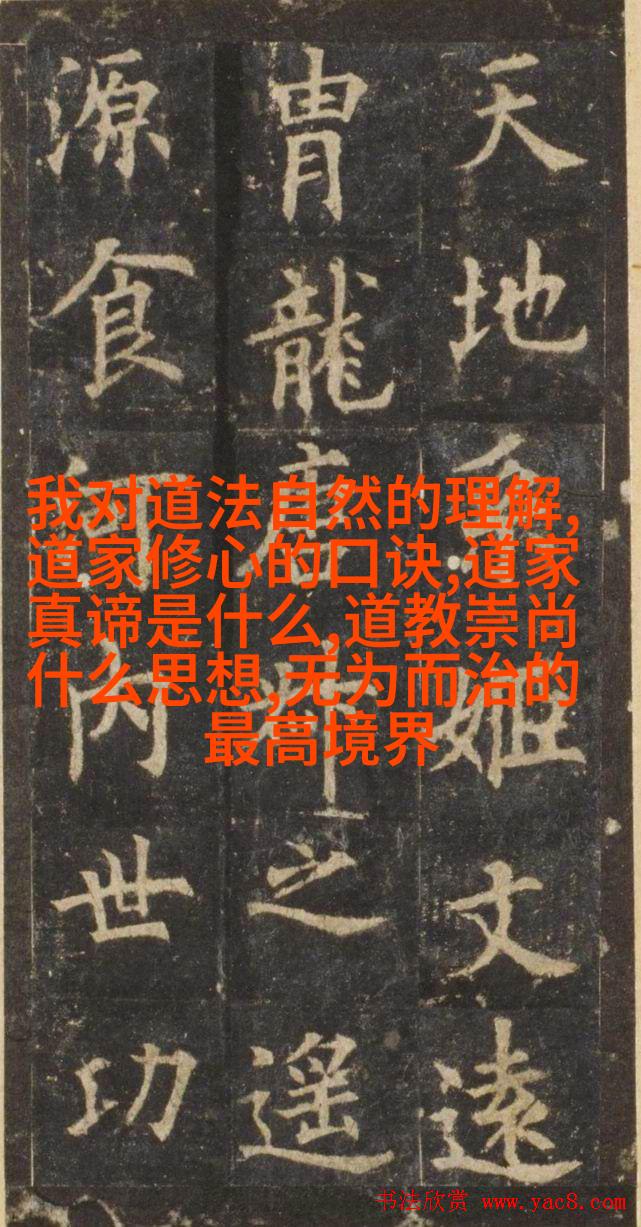 天地姬文遠
胄龍之遥
源食内世功
我对道法自然的理解,
道家修心的口诀,道家
真谛是什么,道教崇尚
什么思想,无为而治的
最高境界
书法欣赏 www.yac8.com